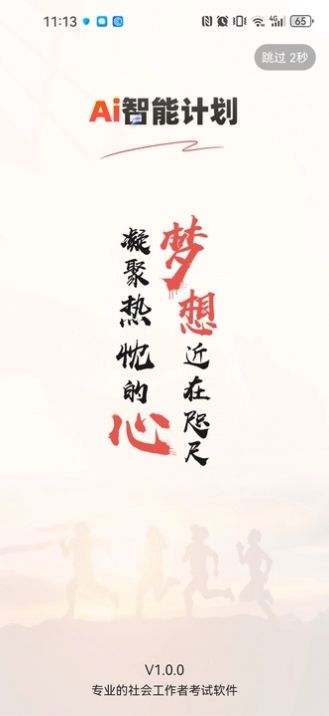 11:13
4G
65
跳过 2秒
Ai智能计划
梦想近在咫尺
凝聚热忱的心
V1.0.0
专业的社会工作者考试软件